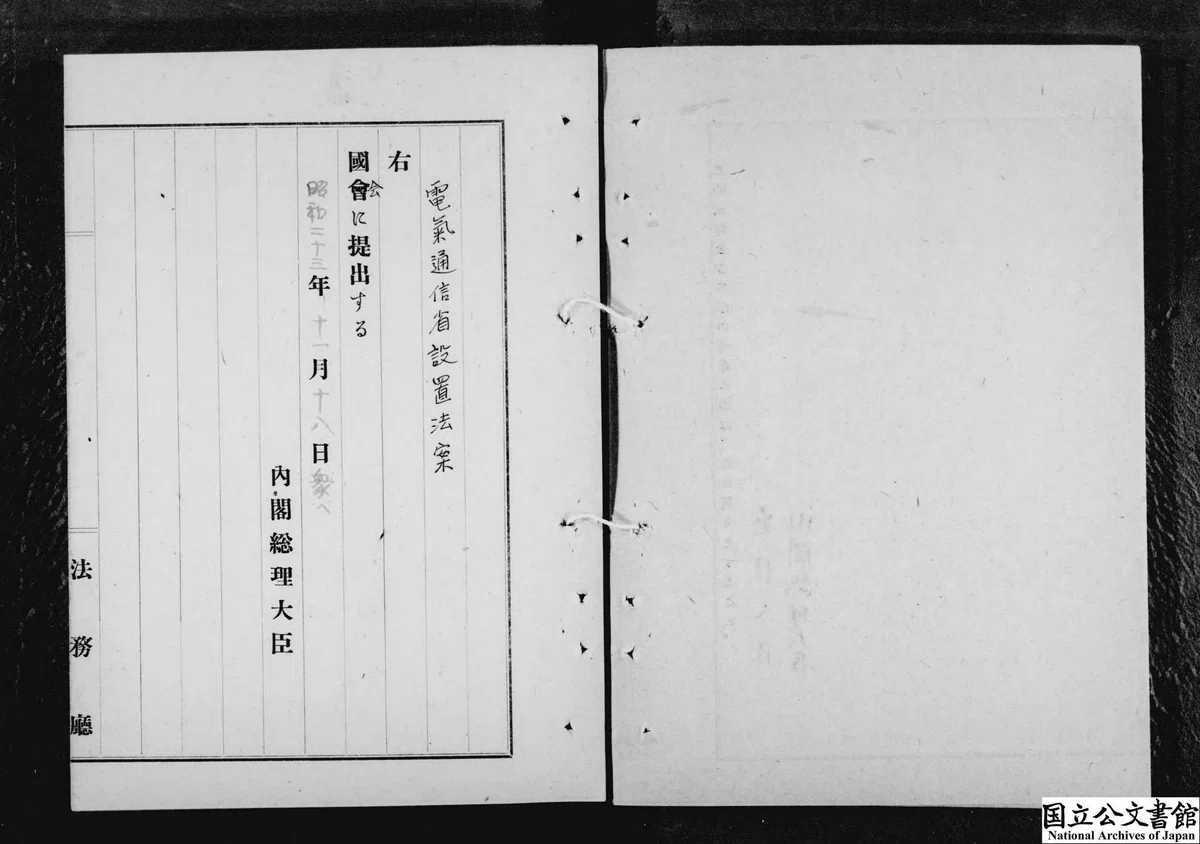 電氣通信省設置法案
右
國會会に提出する
昭和二十三年十一月十八日衆へ
内閣総理大臣
法務廳
国立公文書館
National Archives of Japan